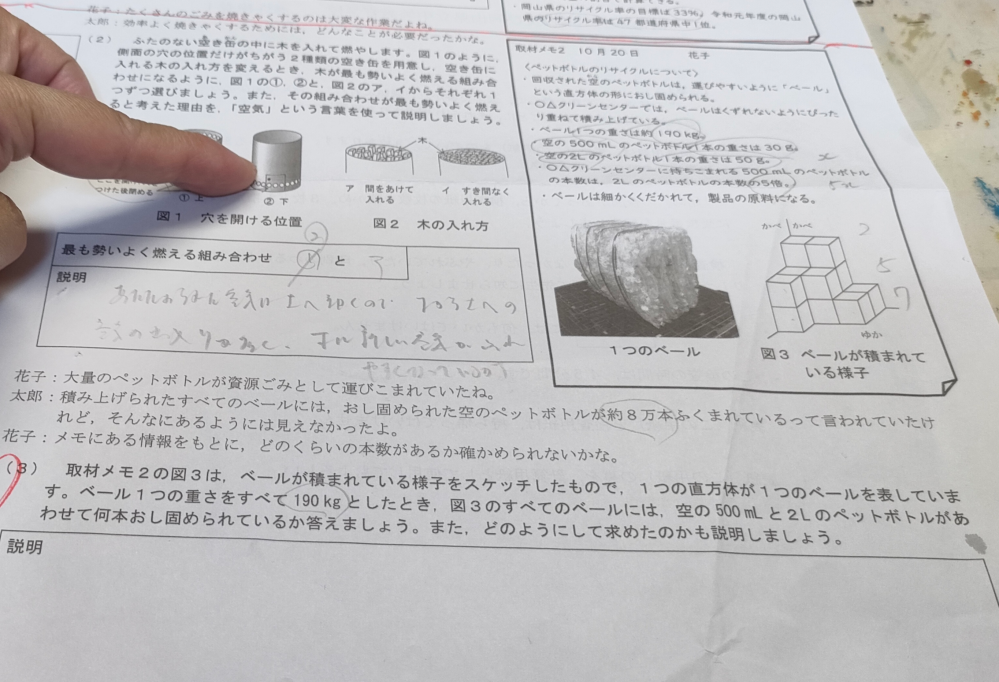 花子：たくさんのごみを焼きゃくするのは大変な作業だよね。
太郎：効率よく焼きゃくするためには、どんなことが必要だったかな。
（2） ふたのない空き缶の中に木を入れて燃やします。図1のように、
側面の穴の位置だけがちがう2種類の空き缶を用意し、空き缶に
入れる木の入れ方を変えるとき、木が最も勢いよく燃える組み合
わせになるように、図1の①、②と、図2のア、イからそれぞれ1
つずつ選びましょう。また、その組み合わせが最も勢いよく燃え
ると考えた理由を、「空気」という言葉を使って説明しましょう。
つけた後閉める
① 上
② 下
図1 穴を開ける位置
木
ア 間をあけて
入れる
イ すき間なく
入れる
図2 木の入れ方
最も勢いよく燃える組み合わせ
②
と
ア
説明
岡山県のリサイクル率の目標は33%、令和元年度の岡山
県のリサイクル率は47都道府県中1位。
取材メモ2 10月20日 花子
＜ペットボトルのリサイクルについて＞
・回収された空のペットボトルは、運びやすいように「ベール」
という直方体の形におし固められる。
・○△クリーンセンターでは、ベールはくずれないようにぴった
り重ねて積み上げている。
・ベール1つの重さは約190kg。
・空の500mLのペットボトル1本の重さは30g。
・空の2Lのペットボトル1本の重さは50g。
x
・○△クリーンセンターに持ちこまれる500mLのペットボトル
の本数は、2Lのペットボトルの本数の5倍。
・ベールは細かくくだかれて、製品の原料になる。
1つのベール
かべ かべ
2
5
7
ゆか
図3 ベールが積まれて
いる様子
花子：大量のペットボトルが資源ごみとして運びこまれていたね。
太郎：積み上げられたすべてのベールには、おし固められた空のペットボトルが約8万本ふくまれているって言われていたけ
れど、そんなにあるようには見えなかったよ。
花子：メモにある情報をもとに、どのくらいの本数があるか確かめられないかな。
（3） 取材メモ2の図3は、ベールが積まれている様子をスケッチしたもので、1つの直方体が1つのベールを表していま
す。ベール1つの重さをすべて190kgとしたとき、図3のすべてのベールには、空の500mLと2Lのペットボトルがあ
わせて何本おし固められているか答えましょう。また、どのようにして求めたのかも説明しましょう。
説明